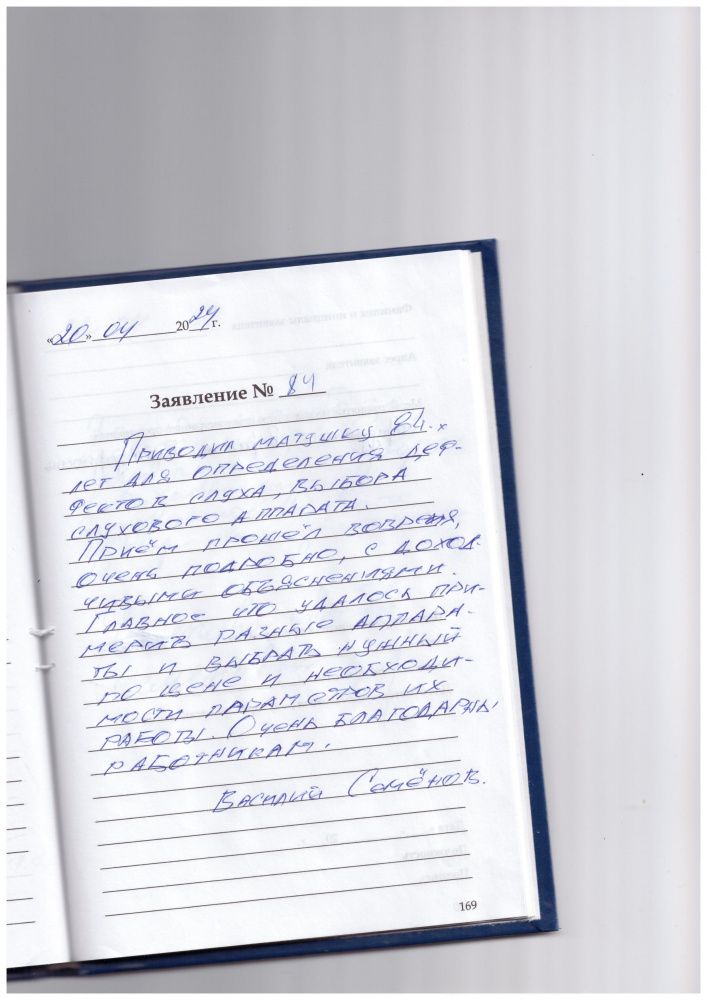 «20» 04 2024г.
Заявление № 84
Приводил матушку 84-х
лет для определения деф-
фектов слуха, выбора
слухового аппарата.
Приём прошёл вовремя,
очень подробно, с доход-
чивыми объяснениями.
Главное что удалось при-
мерить разные аппара-
ты и выбрать нужный
по цене и необходи-
мости параметров их
работы. Очень благодарны
работникам.
Василий Семёнов.
169